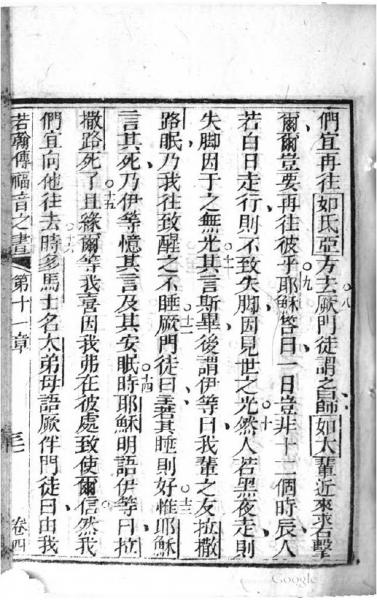 們宜再往如氏亞方去厥門徒謂之曰師如大輩近來求石擊
爾爾豈要再往彼乎耶穌答曰一日豈非十二個時辰人
若白日走行則不致失脚因見世之光然人若黑夜走則
失脚因于之無光其言斯畢後謂伊等曰我輩之友拉撒
路眠乃我往致醒之不睡厥門徒曰若其睡則好惟耶穌
言其死乃伊等憶其言及其安眠時耶穌明語伊等曰拉
撒路死了且緣爾等我喜因我弗在彼處致使爾信然我
們宜向他往去時多馬士名大弟母語厥伴門徒曰由我
若翰傳福音之書 第十一章 三 卷四
○八
○九
○十
○十一
○十二
○十三
○十四
○十五
○十六
Google